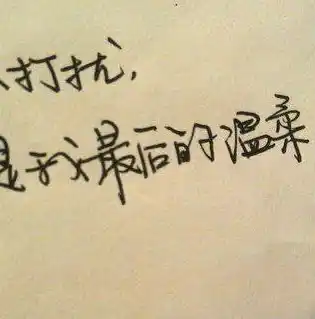 打扰，
是我最后的温柔